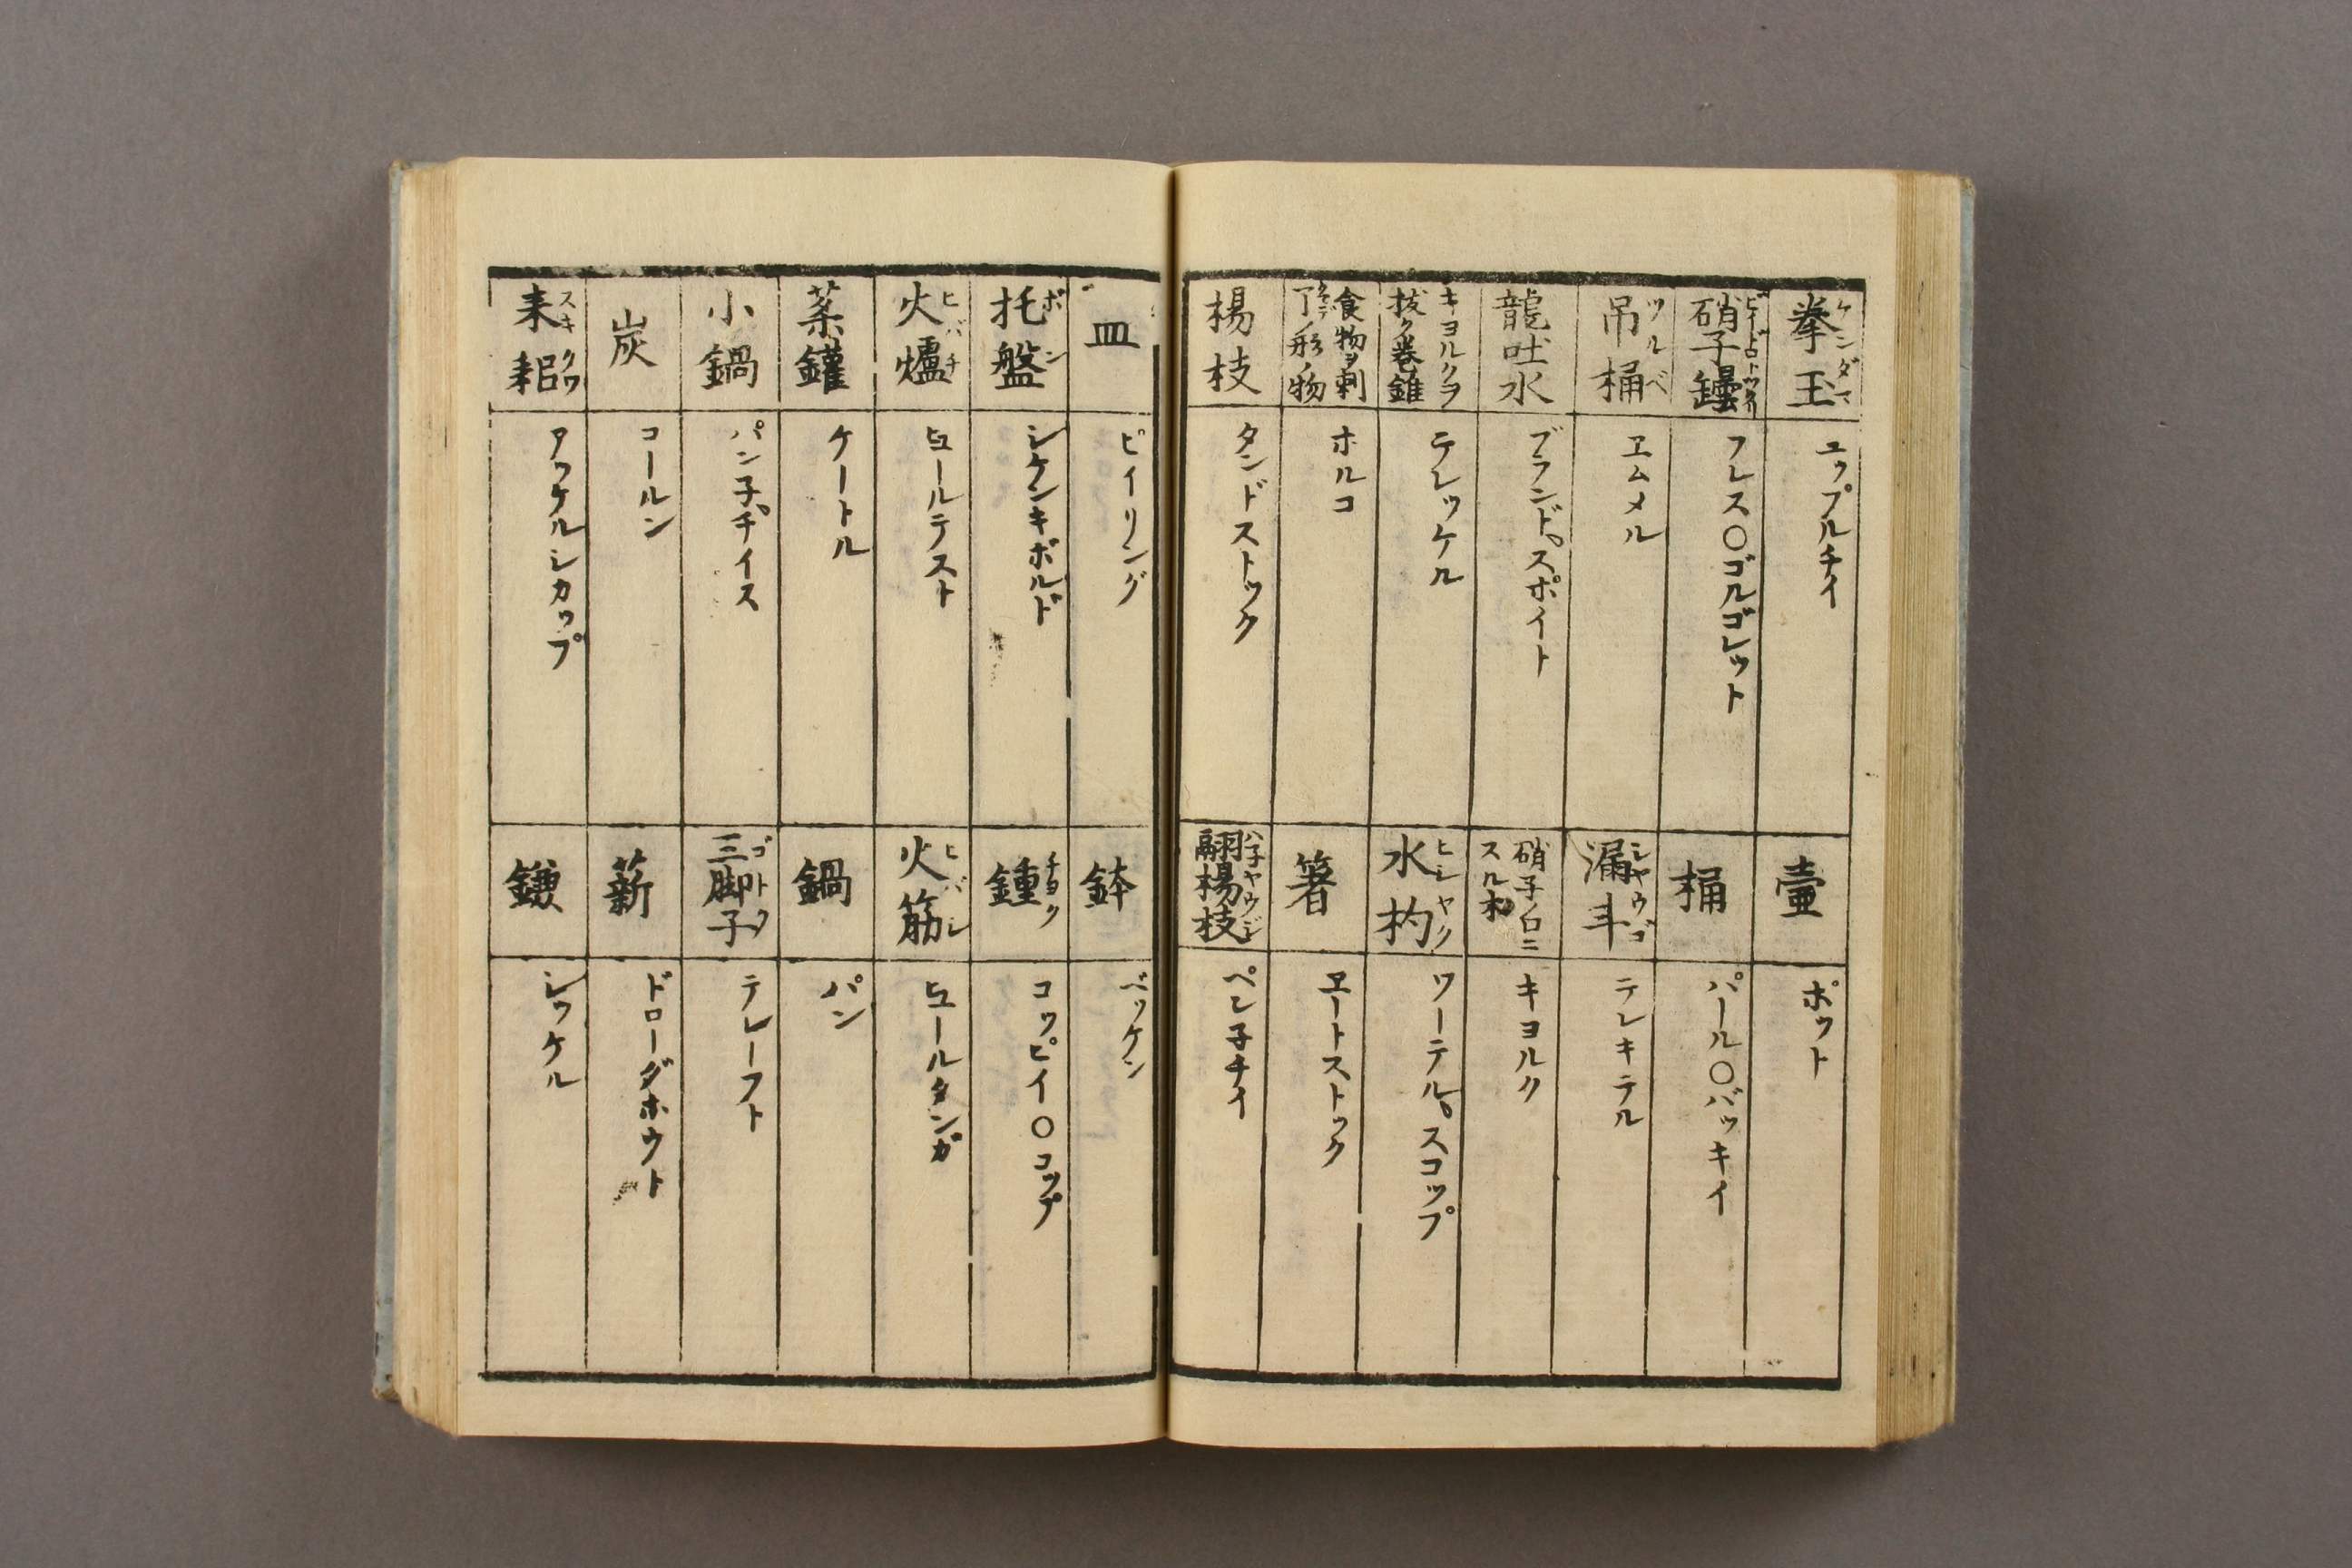 拳玉 ケンダマ
ユップルチイ
硝子罎
フレス〇ゴルゴレット
吊桶 ツルベ
ヱムメル
龍吐水
ブランド、スポイト
キヨルクヲ
抜ク器錐
テレッケル
食物ヲ刺
了ノ形ノ物
ホルコ
楊枝
タンドストック
壷
ポット
桶
パール〇バッキイ
漏斗 シヤウゴ
テレキテル
硝子ノ口ニ
スル木
キヨルク
水杓 ヒシヤク
ワーテル、スコップ
箸
ヱートストック
翮楊枝 ハ子ヤウジ
ペレ子チイ
皿
ピイリング
托盤 ボン
シケンキボルド
火爐 ヒバチ
ヒユールテスト
茶鑵
ケートル
小鍋
パン子チイス
炭
コールン
耒耜 スキクワ
アッケルシカップ
鉢
ベッケン
鍾 チヨク
コッピイ〇コップ
火筋 ヒバシ
ヒユールタンガ
鍋
パン
三脚子 ゴトク
テレーフト
薪
ドローダホウト
鎌
シッケル